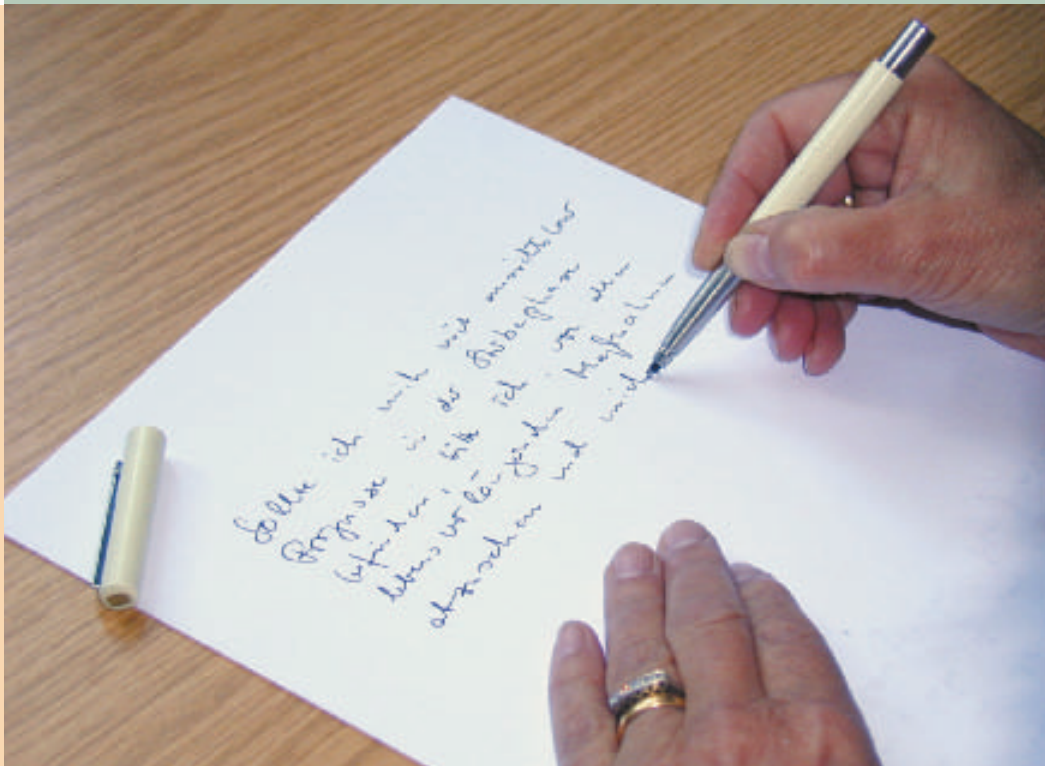 Sollte ich mich wie aussichtslos
Prognose in der Sterbephase
befinden, bitte ich von den
lebensverlängernden Maßnahmen
abzusehen und mich